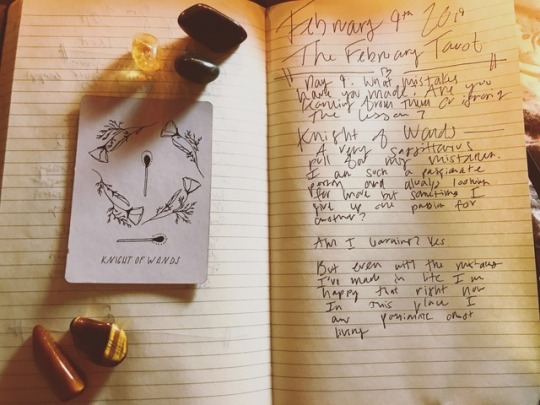 KNIGHT OF WANDS
February 9th 2019
The February Tarot
Day 9. What mistakes
have you made? Are you
learning from them or ignoring
the lesson?
Knight of Wands
A very Sagittarius
pull for my mistakes.
I am such a passionate
person and always looking
for more but sometimes I
give up one passion for
another?
Am I learning? Yes
But even with the mistakes
I've made in life I'm
happy that right now
In this place I
am passionate about
living